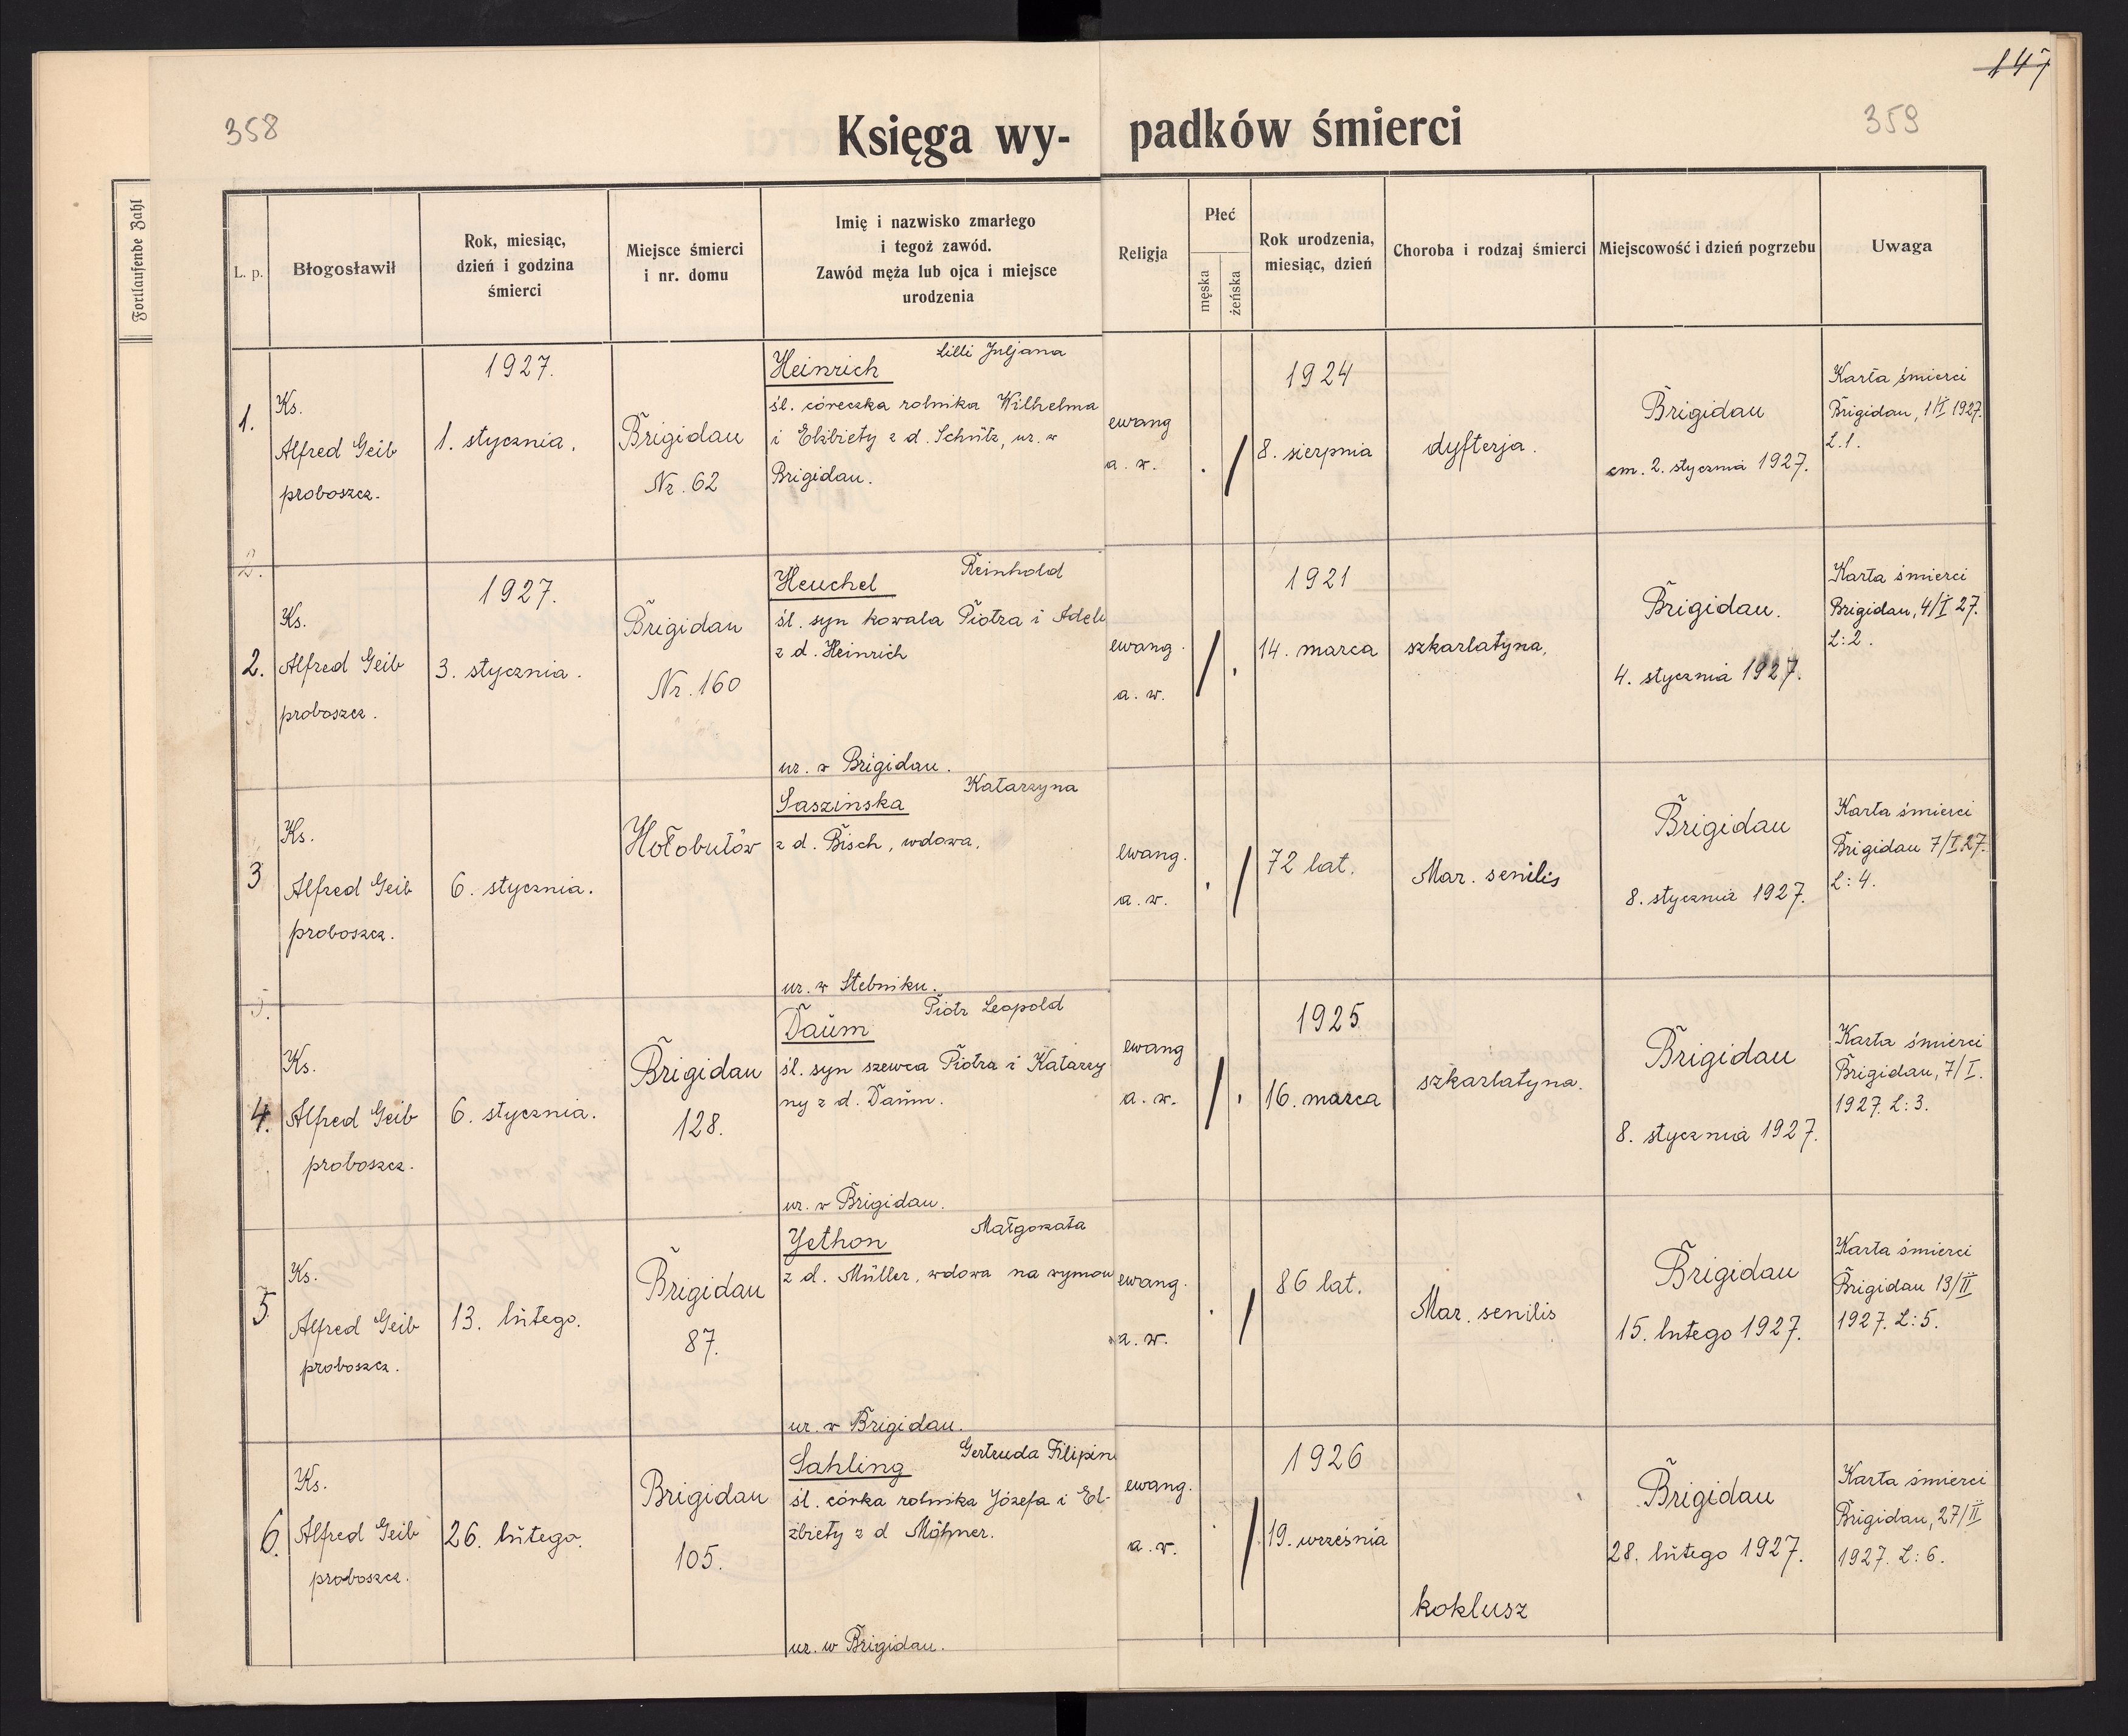 147
358
359
Księga wy-
padków śmierci
Fortlaufende Zahl
L. p.
Błogosławił
Rok, miesiąc,
dzień i godzina
śmierci
Miejsce śmierci
i nr. domu
Imię i nazwisko zmarłego
i tegoż zawód.
Zawód męża lub ojca i miejsce
urodzenia
Religja
Płeć
męska
żeńska
Rok urodzenia,
miesiąc, dzień
Choroba i rodzaj śmierci
Miejscowość i dzień pogrzebu
Uwaga
1.
Ks.
Alfred Geib
proboszcz.
1927.
1. stycznia.
Brigidau
Nr. 62
Lilli Juljana
Heinrich
śl. córeczka rolnika Wilhelma
i Elżbiety z d. Schütz, ur. w
Brigidau.
ewang
a. w.
1924
8. sierpnia
dyfterja.
Brigidau
cm. 2. stycznia 1927.
Karta śmierci
Brigidau, 1/I 1927.
L. 1.
2.
2.
Ks.
Alfred Geib
proboszcz.
1927.
3. stycznia.
Brigidau
Nr. 160
Reinhold
Heuchel
śl. syn kowala Piotra i Adeli
z d. Heinrich
ur. w Brigidau.
ewang.
a. w.
1921
14. marca
szkarlatyna,
Brigidau.
4. stycznia 1927.
Karta śmierci
Brigidau, 4/I 27.
L: 2.
3
Ks.
Alfred Geib
proboszcz.
6. stycznia.
Hołobutów
Katarzyna
Saszinska
z d. Bisch, wdowa,
ur. w Stebniku.
ewang.
a. w.
72 lat.
Mar. senilis
Brigidau
8. stycznia 1927.
Karta śmierci
Brigidau 7/I 27.
L: 4.
4.
Ks.
Alfred Geib
proboszcz.
6. stycznia.
Brigidau
128.
Piotr Leopold
Daum
śl. syn szewca Piotra i Katarzy
ny z d. Daum.
ur. w Brigidau.
ewang
a. w.
1925
16. marca
szkarlatyna.
Brigidau
8. stycznia 1927.
Karta śmierci
Brigidau, 7/I.
1927. L: 3.
5
Ks.
Alfred Geib
proboszcz.
13. lutego.
Brigidau
87.
Małgorzata
Jethon
z d. Müller, wdowa na wymow
ur. w Brigidau.
ewang.
a. w.
86 lat.
Mar. senilis
Brigidau
15. lutego 1927.
Karta śmierci
Brigidau 13/II
1927. L: 5.
6.
Ks.
Alfred Geib
proboszcz.
26. lutego.
Brigidau
105.
Gertruda Filipin
Sahling
śl. córka rolnika Józefa i El-
żbiety z d
ur. w Brigidau.
ewang.
a. w.
1926
19. września
koklusz
Brigidau
28. lutego 1927.
Karta śmierci
Brigidau, 27/II
1927. L: 6.